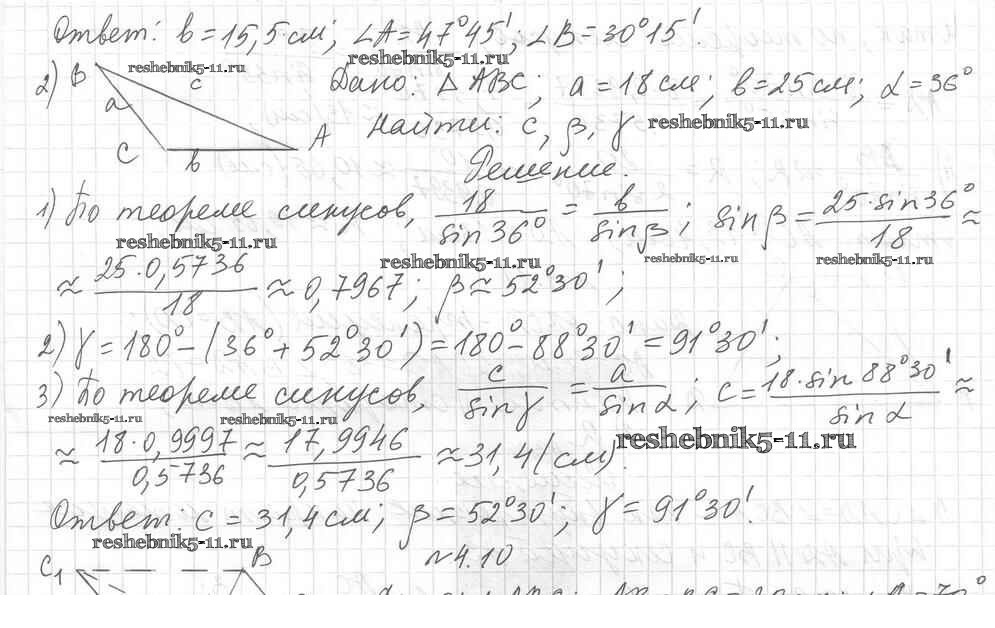 Ответ: b = 15,5 см; ∠A = 47°45'; ∠B = 30°15'.
reshebnik5-11.ru reshebnik5-11.ru
2) B a c C b A Дано: △ABC; a = 18 см; b = 25 см; α = 36°
Найти: c, β, γ reshebnik5-11.ru
Решение.
1) По теореме синусов, 18/sin 36° = b/sin β; sin β = 25·sin 36°/18 ≈
reshebnik5-11.ru reshebnik5-11.ru reshebnik5-11.ru reshebnik5-11.ru
≈ 25·0,5736/18 ≈ 0,7967; β ≈ 52°30';
2) γ = 180° − (36° + 52°30') = 180° − 88°30' = 91°30';
3) По теореме синусов, c/sin γ = a/sin α; c = 18·sin 88°30'/sin α ≈
reshebnik5-11.ru reshebnik5-11.ru reshebnik5-11.ru
≈ 18·0,9997/0,5736 ≈ 17,9946/0,5736 ≈ 31,4 (см).
Ответ: c = 31,4 см; β = 52°30'; γ = 91°30'.
reshebnik5-11.ru
C₁ B №4.10